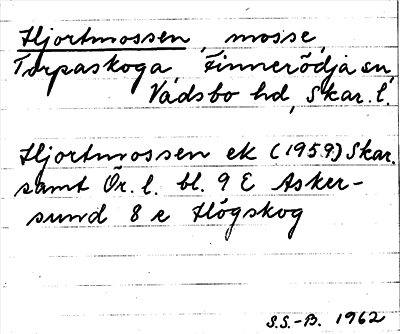 Hjortmossen, mosse,
Torpaskoga, Finnerödja sn,
Vadsbo hd, Skar. l.
Hjortmossen ek (1959) Skar.
samt Ör. l. bl. 9 E Asker-
sund 8 e Högskog
S.S.-B. 1962